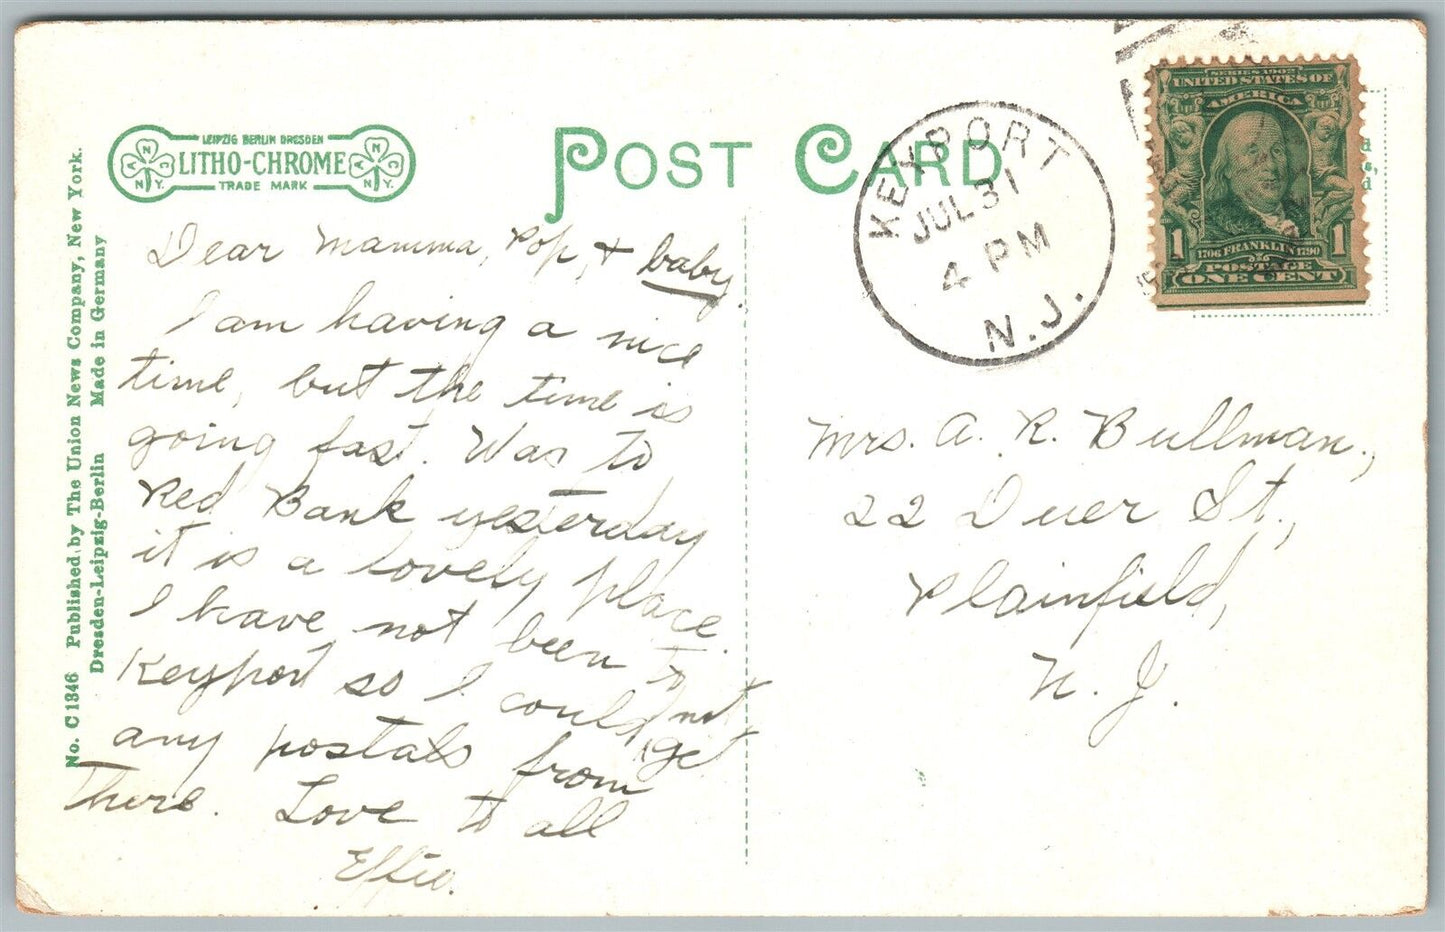 No. C 1346 Published by The Union News Company, New York.
Dresden-Leipzig-Berlin Made in Germany
LEIPZIG BERLIN DRESDEN
LITHO-CHROME
TRADE MARK
POST CARD
Dear Mamma, Pop, + baby.
I am having a nice
time, but the time is
going fast. Was to
Red Bank yesterday
it is a lovely place.
I have not been to
Keyport so I could not
get
any postals from
there. Love to all
Effie.
KEYPORT
JUL 31
4 PM
N.J.
SERIES 1902
UNITED STATES OF
AMERICA
1 1706 FRANKLIN 1790 1
POSTAGE
ONE CENT
Mrs. A. R. Bullman,
22 Duer St.,
Plainfield,
N. J.